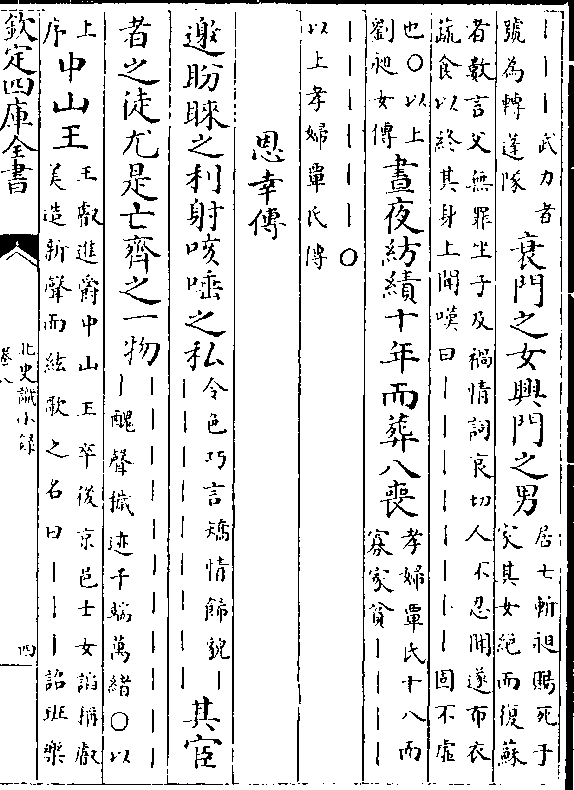 ｜｜｜武力者
號為轉蓬隊
衰門之女興門之男
居士斬昶賜死于
家其女絕而復蘇
者數言父無罪坐子及禍情詞哀切人不忍聞遂布衣
蔬食以終其身上聞嘆曰｜｜｜｜｜｜｜｜固不虛
也○以上
劉昶女傳
晝夜紡績十年而葬八喪
孝婦覃氏十八而
寡家貧｜｜｜｜
｜｜｜｜｜｜○
以上孝婦覃氏傳
恩幸傳
邀盼睞之利射咳唾之私
令色巧言矯情飾貌｜
｜｜｜｜｜｜｜｜｜
其宦
者之徒尤是亡齊之一物
｜｜｜｜｜｜｜｜｜｜
｜醜聲穢迹千端萬緒○以
上
序
中山王
王叡進爵中山王卒後京邑士女諂稱叡
美造新聲而絃歌之名曰｜｜｜詔班樂
欽定四庫全書
北史識小錄
卷八
四